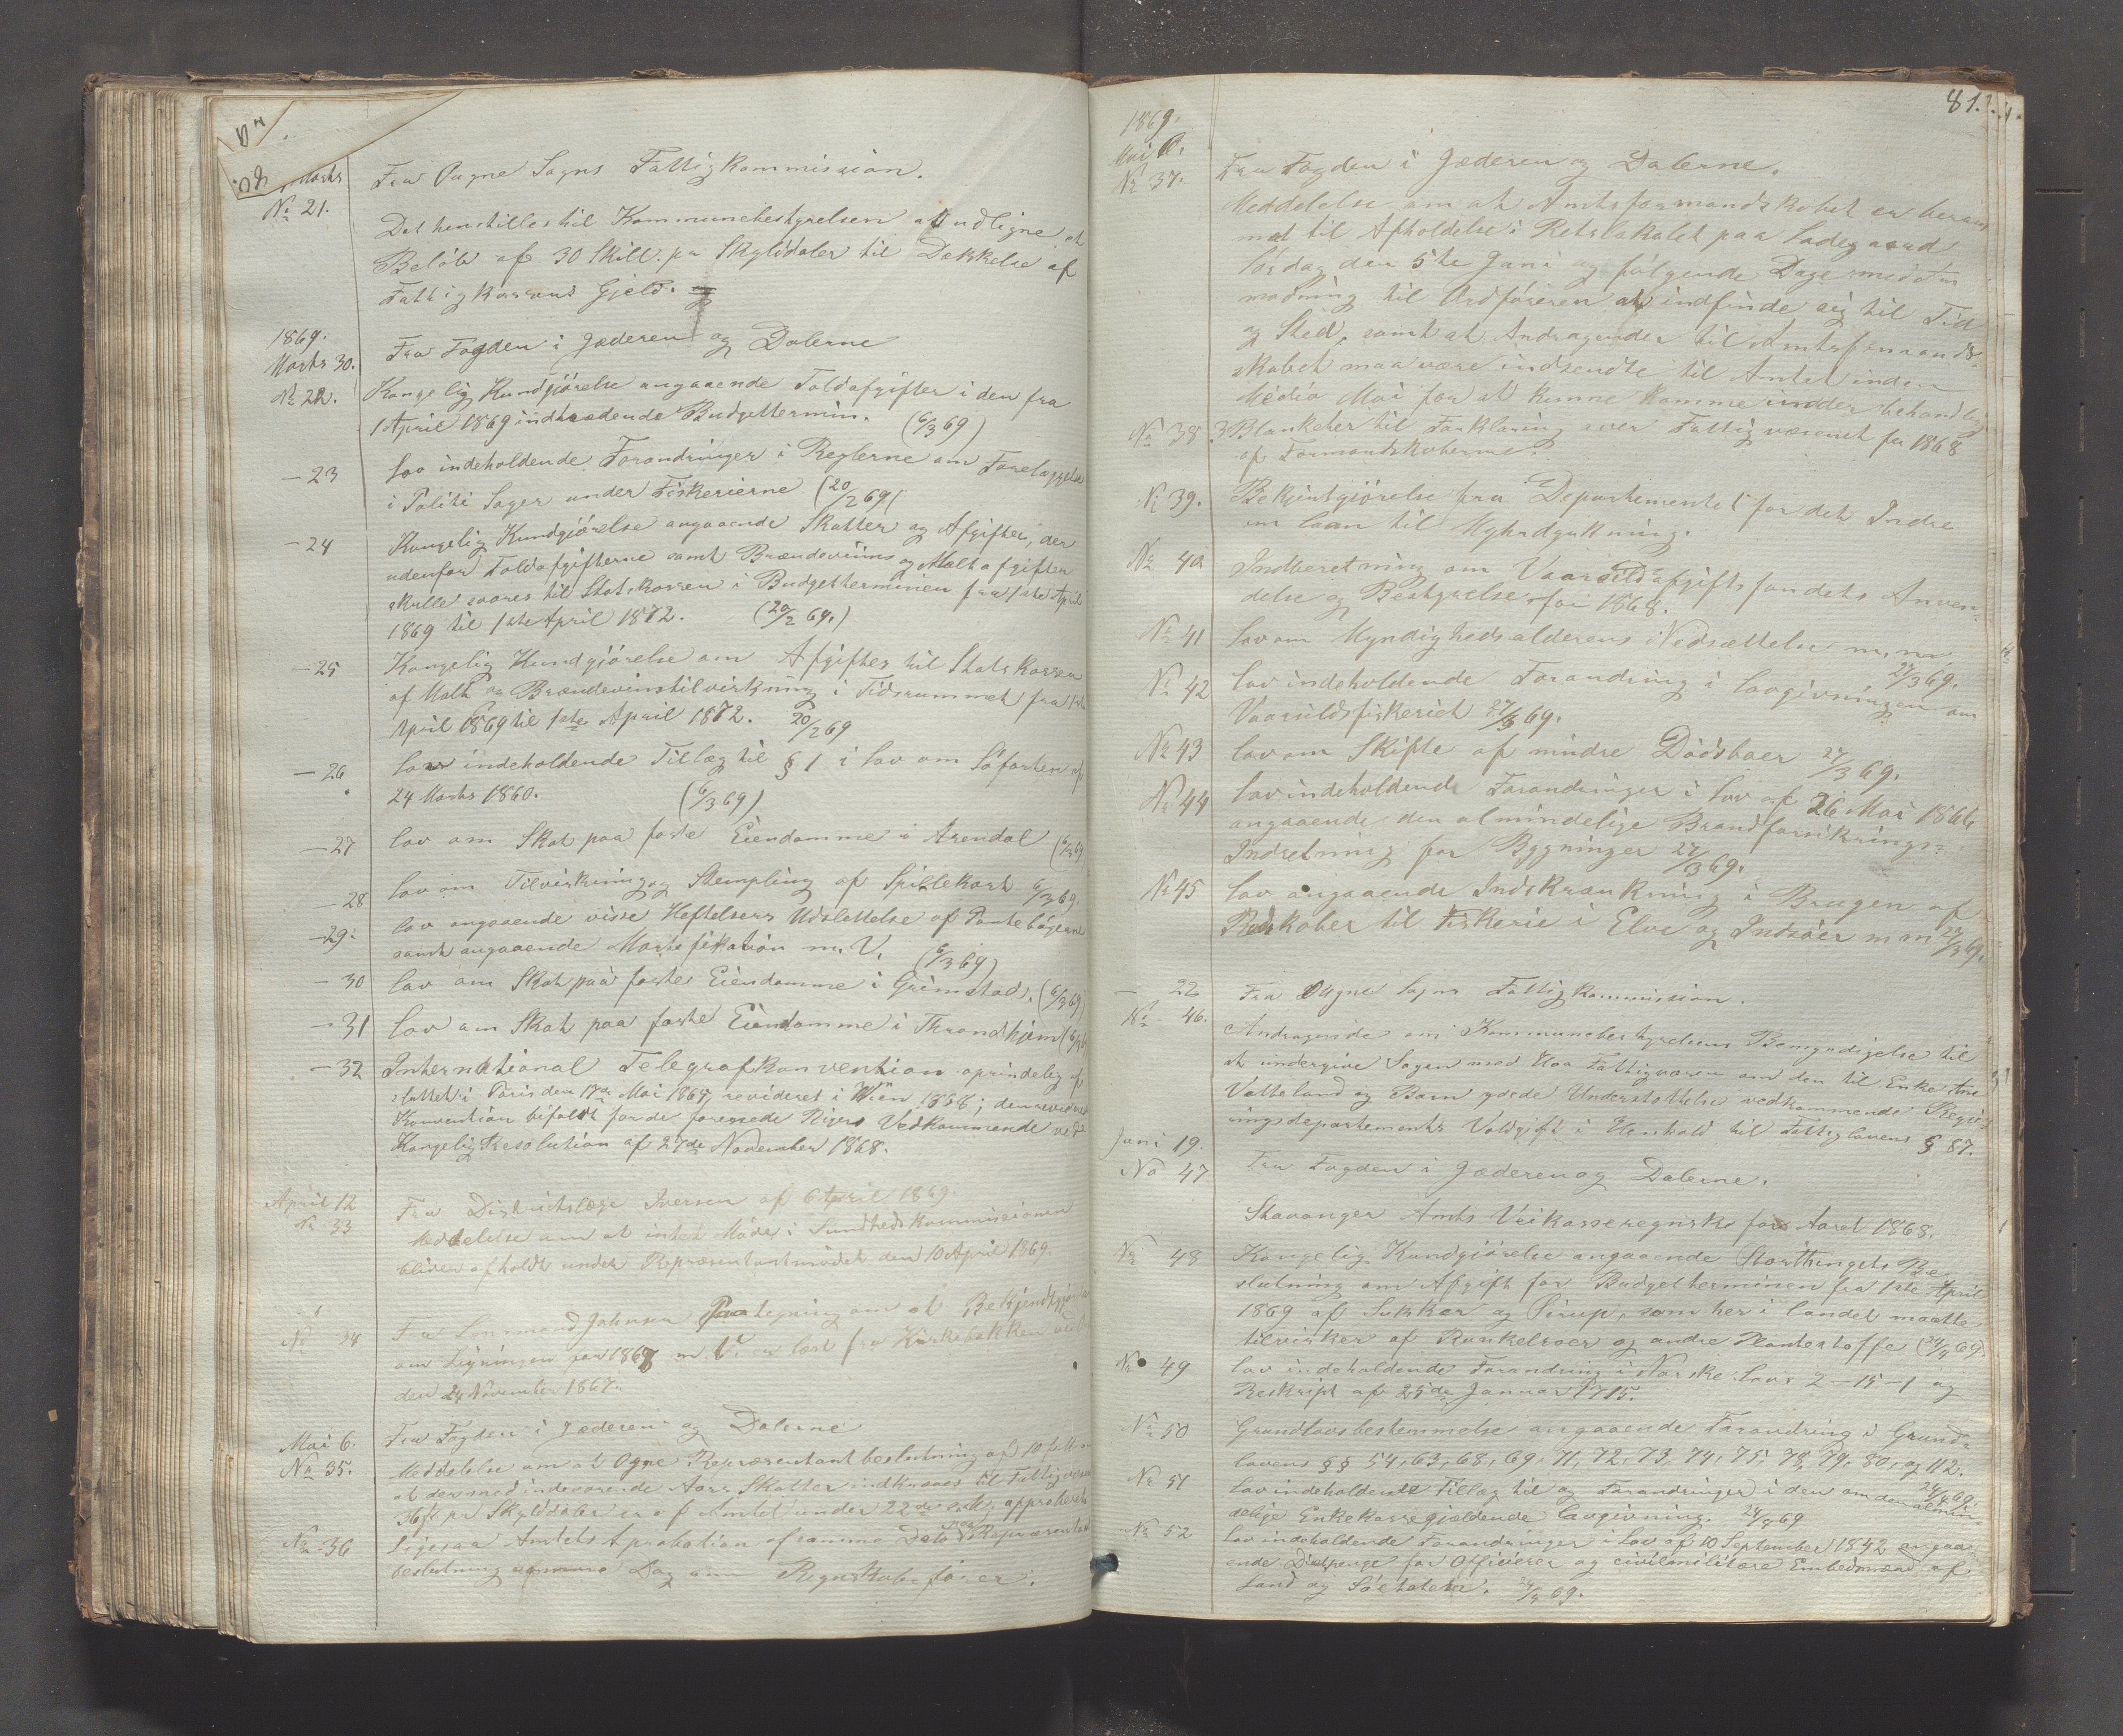 Marts
No 21.
Fra Ougne Sogns Fattigkommission.
Det henstilles til Kommunebestyrelsen at udligne et
Beløb af 30 Skill. pr Skylddaler til Dækkelse af
Fattigkassens Gjeld.
1869.
Marts 30.
Fra Fogden i Jæderen og Dalerne
No 22.
Kongelig Kundgjörelse angaaende Toldafgifter i den fra
1 April 1869 indtrædende Budgettermin. (6/3 69)
— 23
Lov indeholdende Forandringer i Reglerne om Forelæggelse
i Politi Sager under Fiskerierne (20/2 69)
— 24
Kongelig Kundgjörelse angaaende Skatter og Afgifter, der
udenfor Toldafgifterne samt Brændeviins og Maltafgiften
skulle svares til Statskassen i Budgetterminen fra 1ste April
1869 til 1ste April 1872. (20/2 69.)
— 25
Kongelig Kundgjörelse om Afgifter til Statskassen
af Malt og Brændevinstilvirkning i Tidsrummet fra 1ste
April 1869 til 1ste April 1872. 20/2 69
— 26
Lov indeholdende Tillæg til § 1 i Lov om Söfarten af
24 Marts 1860. (6/3 69)
— 27
Lov om Skat paa faste Eiendomme i Arendal (6/3 69
— 28
Lov om Tilvirkning og Stempling af Spillekort 6/3 69.
— 29.
Lov angaaende visse Heftelsers Udslettelse af Pantebögerne
samt angaaende Mortifikation m. V. (6/3 69)
— 30
Lov om Skat paa faste Eiendomme i Grimstad. (6/3 69)
— 31
Lov om Skat paa faste Eiendomme i Throndhjem (6/3 69
— 32
International Telegrafkonvention oprindelig af
sluttet i Paris den 17de Mai 1865, revideret i Wien 1868; den reviderede
Konvention bifaldt for de forenede Rigers Vedkommende ved
Kongelig Resolution af 27de November 1868.
April 12
No 33
Fra Distriktslæge Iversen af 6 April 1869.
Meddelelse om at intet Möde i Sundhedskommissionen
bliver afholdt under Repræsentantmödet den 10 April 1869.
No 34
Fra Lensmand Johnsen Paategning om at Bekjendtgjörelse
om Ligningen for 1868 m. V. er læst fra Kirkebakken
den 24 November 1867.
Mai 6.
Fra Fogden i Jæderen og Dalerne
No 35.
Meddelelse om at Ogne Repræsentantbeslutning af 10
at der med indeværende Aars Skatter indkræves til Fattigvæsen
pr Skylddaler er af Amtet under 22de approberet
No 36
Ligesaa Amtets Approbation af samme Dato paa Repræsentant
beslutning Dag om Regnskabsförer.
81.
1869.
Mai 6.
No 37.
Fra Fogden i Jæderen og Dalerne.
Meddelelse om at Amtsformandskabet er beram
met til Afholdelse i Retslokalet paa Ladegaard
Lördag den 5te Juni og fölgende Dage med An
modning til Ordföreren at indfinde sig til Tid
og Sted, samt at Andragender til Amtsformand-
skabet maa være indsendte til Amtet inden
Medio Mai for at kunne komme under behandling
No 38
3 Blanketer til Forklaring over Fattigvæsenet for 1868
af Formandskaberne.
No 39.
Bekjentgjörelse fra Departementet for det Indre
om Laan til Myhrdyrkning.
No 40
Indberetning om Vaarsildafgiftsfondets Anven-
delse og Bestyrelse for 1868.
No 41
Lov om Myndighedsalderens Nedsættelse m. m.
27/3 69.
No 42
Lov indeholdende Forandring i Lovgivningen om
Vaarsildfiskeriet 27/3 69.
No 43
Lov om Skifte af mindre Dödsboer 27/3 69.
No 44
Lov indeholdende Forandringer i Lov af 26 Mai 1866
angaaende den almindelige Brandforsikrings-
Indretning for Bygninger 27/3 69.
No 45
Lov angaaende Indskrænkning i Brugen af
Redskaber til Fiskerie i Elve og Indsöer m m 27/3 69.
— 22
Fra Ougne Sogns Fattigkommission.
No 46.
Andragende om Kommunebestyrelsens Bemyndigelse til
at undergive Sagen med Haa Fattigvæsen om den til Enke Ane
Vatteland og Barn ydede Understöttelse vedkommende Regje
ringsdepartementets Voldgift i Henhold til Fattiglovens § 87.
Juni 19.
No 47
Fra Fogden i Jæderen og Dalerne.
Stavanger Amts Veikasseregnskab for Aaret 1868.
No 48
Kongelig Kundgjörelse angaaende Storthingets Be-
slutning om Afgift for Budgetterminen fra 1ste April
1869 af Sukker og Sirup, som her i Landet maatte
tilvirkes af Runkelroer og andre Plantestoffe (24/4 69.
No 49
Lov indeholdende Forandring i Norske Lovs 2-15-1 og
Reskript af 25de Januar 1715.
No 50
Grundlovsbestemmelse angaaende Forandring i Grund-
lovens §§ 54, 63, 68, 69, 71, 72, 73, 74, 75, 78, 79, 80, og 112.
24/4 69.
No 51
Lov indeholdende Tillæg til og Forandringer i den om den almin-
delige Enkekasse gjældende Lovgivning. 24/4 69
No 52
Lov indeholdende Forandringer i Lov af 10 September 1842 angaa
ende Diætpenge for Officierer og civilmilitære Embedsmænd af
Land og Söetaten. 24/4 69.